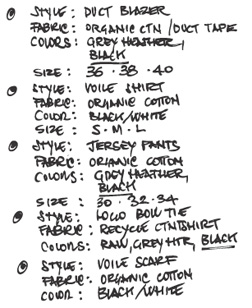 STYLE: DUCT BLAZER
FABRIC: ORGANIC CTN / DUCT TAPE
COLORS: GREY HEATHER,
BLACK
SIZE: 36 · 38 · 40
STYLE: VOILE SHIRT
FABRIC: ORGANIC COTTON
COLOR: BLACK/WHITE
SIZE: S · M · L
STYLE: JERSEY PANTS
FABRIC: ORGANIC COTTON
COLORS: GREY HEATHER,
BLACK
SIZE: 30 · 32 · 34
STYLE: LOGO BOW TIE
FABRIC: RECYCLE CTN TSHIRT
COLORS: RAW, GREY HTR, BLACK
STYLE: VOILE SCARF
FABRIC: ORGANIC COTTON
COLOR: BLACK/WHITE